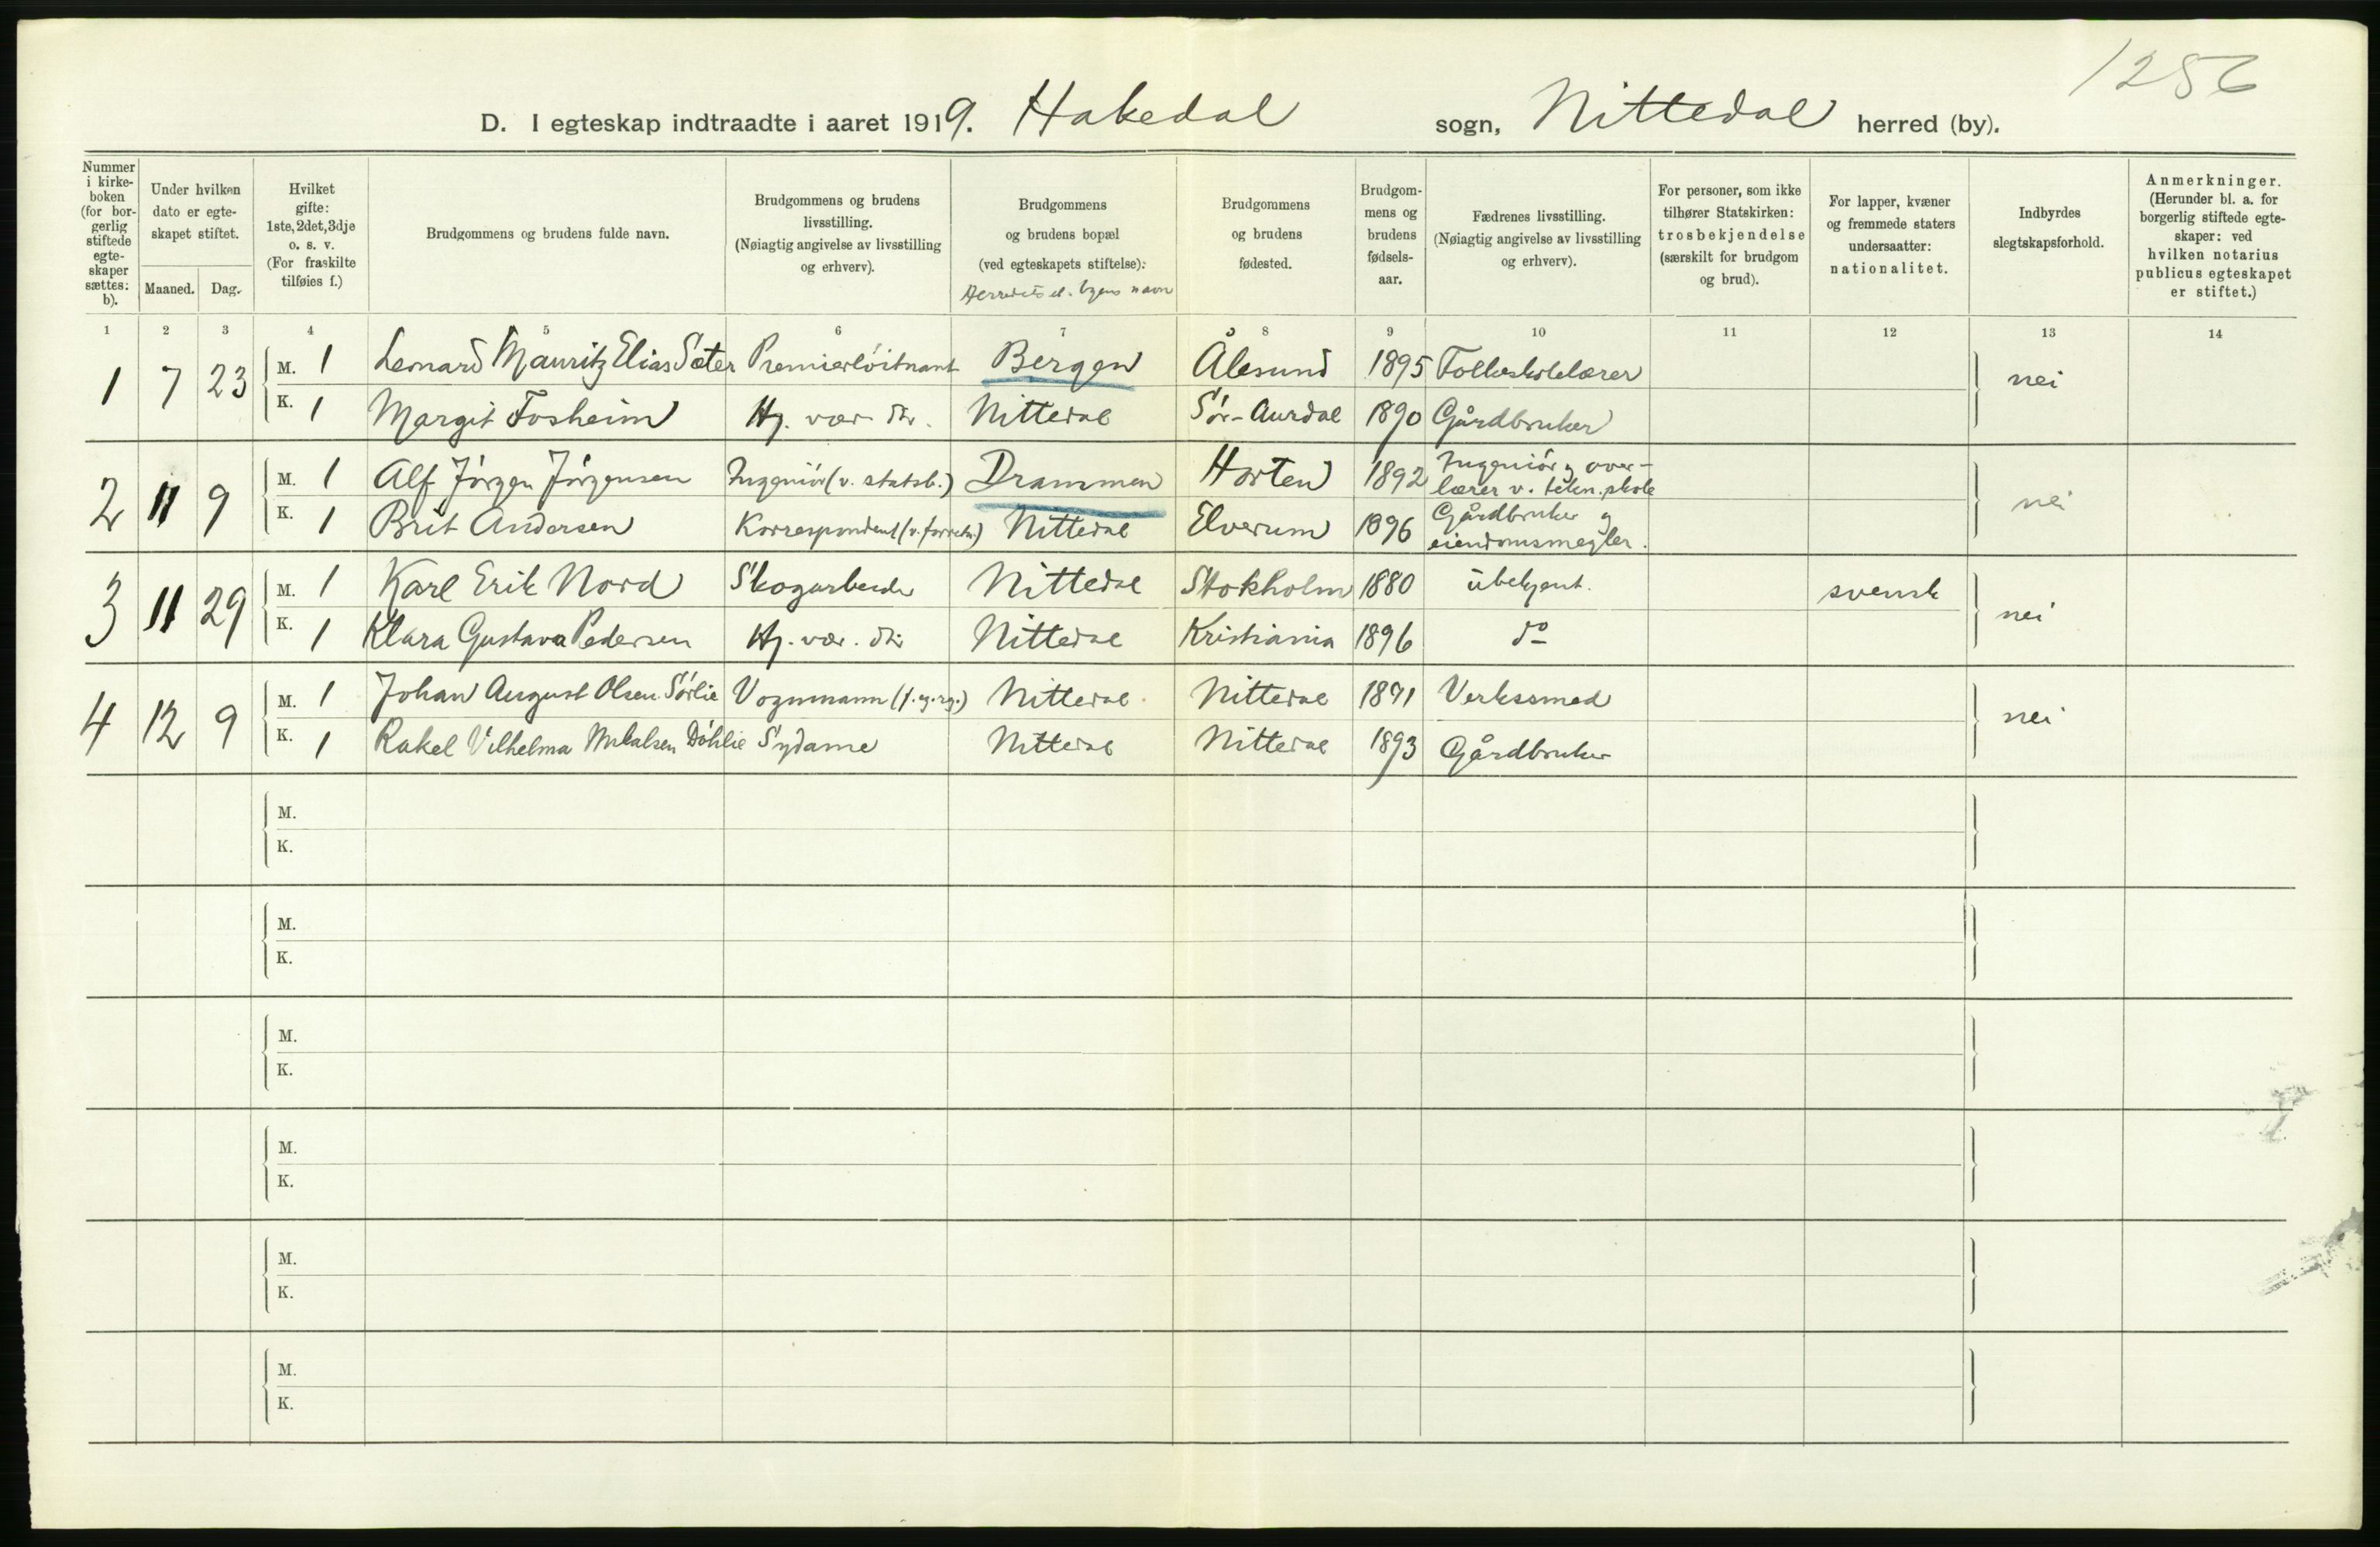 1256
D. I egteskap indtraadte i aaret 1919. Hakedal sogn, Nittedal herred (by).
Nummer i kirke-boken (for bor-gerlig stiftede egte-skaper sættes: b).
Under hvilken dato er egte-skapet stiftet.
Maaned. Dag.
Hvilket gifte: 1ste, 2det, 3dje o. s. v. (For fraskilte tilføies f.)
Brudgommens og brudens fulde navn.
Brudgommens og brudens livsstilling. (Nøiagtig angivelse av livsstilling og erhverv).
Brudgommens og brudens bopæl (ved egteskapets stiftelse): Herredets el. byens navn
Brudgommens og brudens fødested.
Brudgom-mens og brudens fødsels-aar.
Fædrenes livsstilling. (Nøiagtig angivelse av livsstilling og erhverv).
For personer, som ikke tilhører Statskirken: trosbekjendelse (særskilt for brudgom og brud).
For lapper, kvæner og fremmede staters undersaatter: nationalitet.
Indbyrdes slegtskapsforhold.
Anmerkninger. (Herunder bl. a. for borgerlig stiftede egte-skaper: ved hvilken notarius publicus egteskapet er stiftet.)
1 2 3 4 5 6 7 8 9 10 11 12 13 14
1 7 23 M. 1 Leonard Mauritz Elias Sæter Premierlöitnant Bergen Ålesund 1895 Folkeskolelærer nei
K. 1 Margit Fosheim Hj. vær. dtr. Nittedal Sör-Aurdal 1890 Gårdbruker
2 11 9 M. 1 Alf Jörgen Jörgensen Ingeniör (v. statsb.) Drammen Horten 1892 Ingeniör og over-
lærer v. tekn. skole nei
K. 1 Brit Andersen Korrespondent (v. forretn.) Nittedal Elverum 1896 Gårdbruker og
eiendomsmegler.
3 11 29 M. 1 Karl Erik Nord Skogarbeider Nittedal Stokholm 1880 ubekjent. svensk nei
K. 1 Klara Gustava Pedersen Hj. vær. dtr. Nittedal Kristiania 1896 do
4 12 9 M. 1 Johan August Olsen Sörlie Vognmann Nittedal Nittedal 1891 Verkssmed nei
K. 1 Rakel Vilhelma Mikalsen Döhlie Sydame Nittedal Nittedal 1893 Gårdbruker
M.
K.
M.
K.
M.
K.
M.
K.
M.
K.
M.
K.